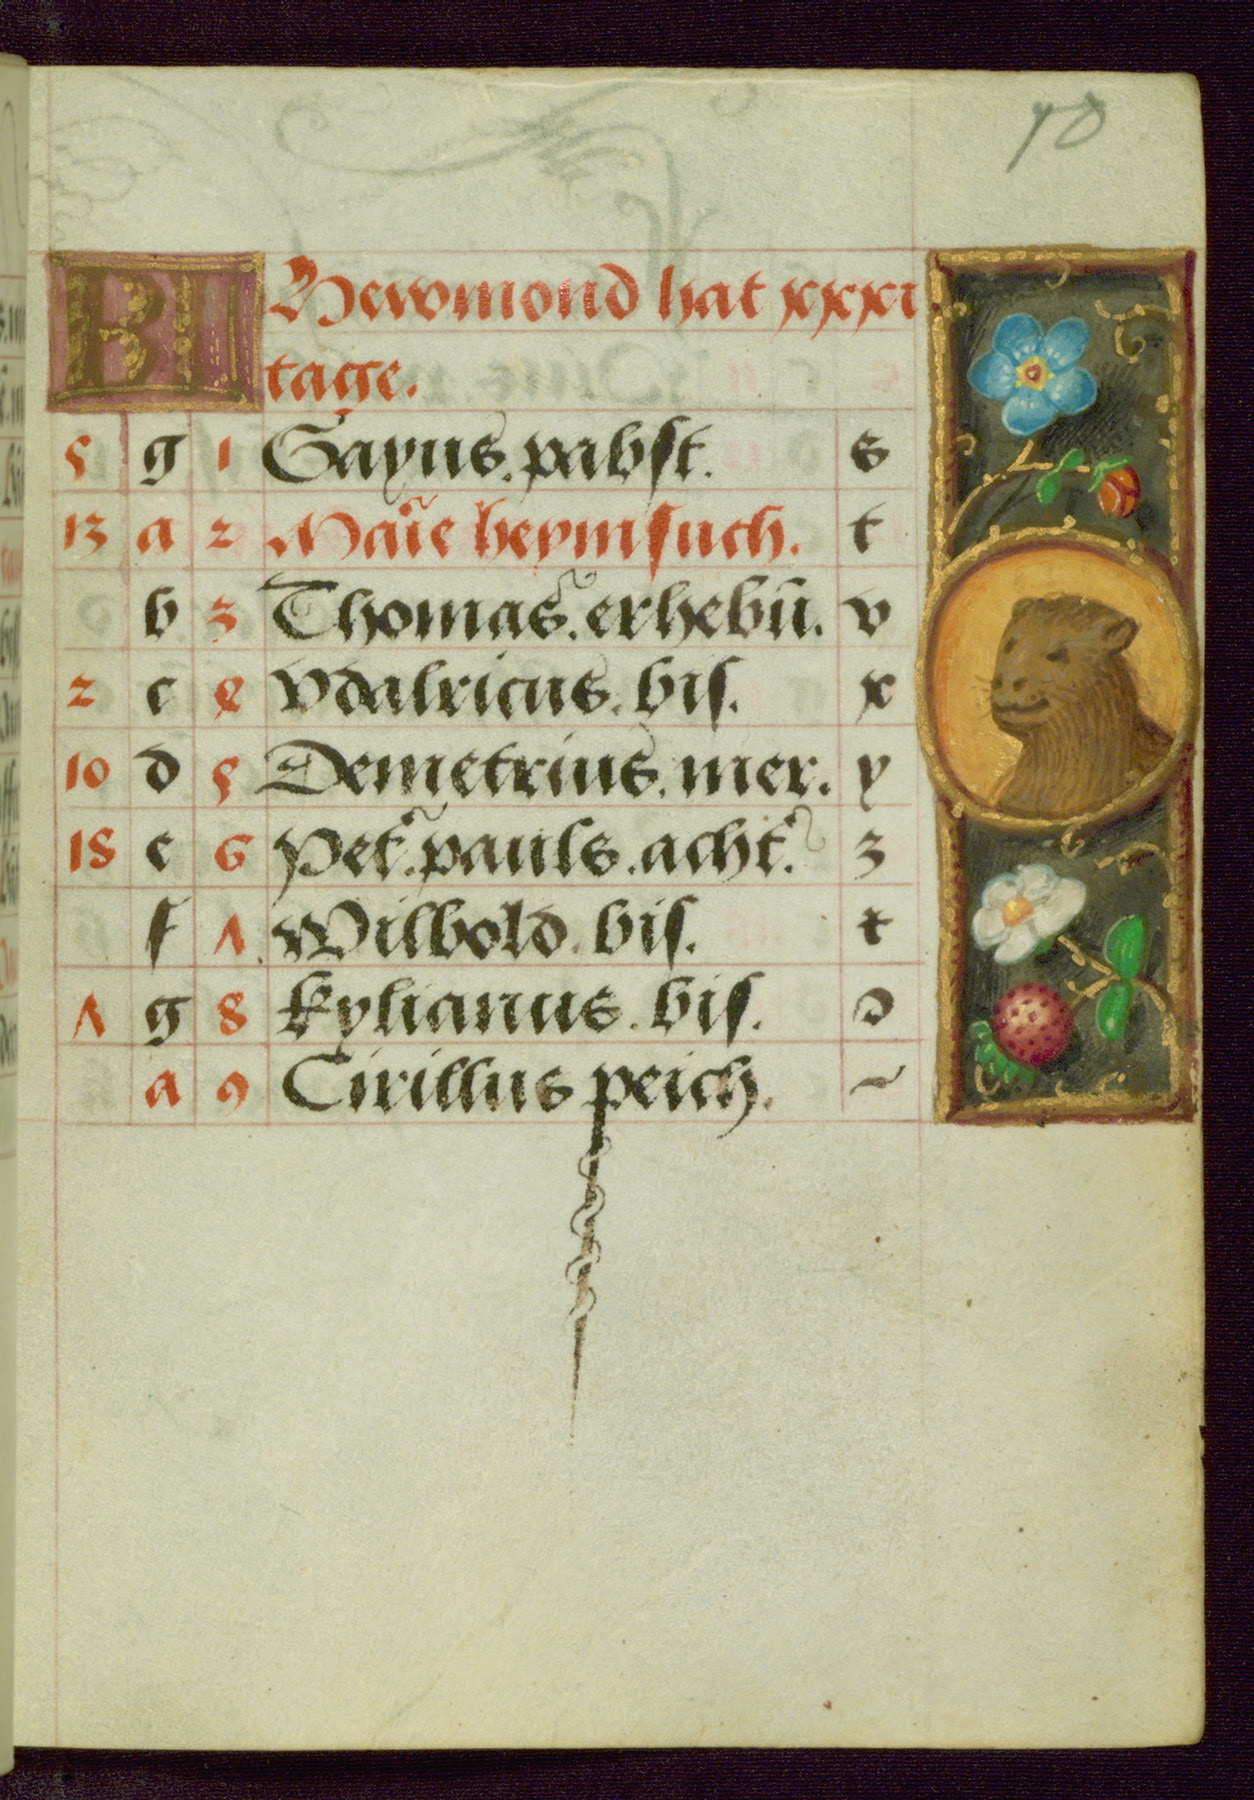 10
Hewmond hat xxxi
tage.
5 g 1 Gayus. pabst. s
13 a 2 Marie heymsuch. t
b 3 Thomas. erhebu. v
2 c 4 Vdalricus. bis. x
10 d 5 Demetrius. mer. y
18 e 6 Pet. pauls. acht. z
f 7 Wilbold. bis. t
7 g 8 Kylianus. bis. ꝰ
a 9 Cirillus peich. ~